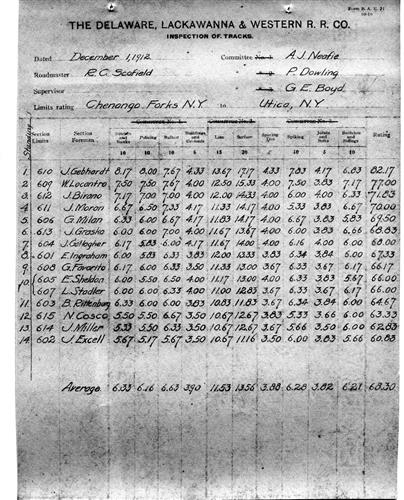 THE DELAWARE, LACKAWANNA & WESTERN R. R. CO.
INSPECTION OF TRACKS.
Dated December 1, 1912 Committee No. 1 A.J. Neafie
Roadmaster R.C. Scofield P. Dowling
Supervisor G.E. Boyd
Limits rating Chenango Forks N.Y to Utica, N.Y
Standing Section Limits Section Foreman Ditches and Banks Policing Ballast Buildings and Grounds Line Surface Spacing Ties Spiking Joints and Bolts Switches and Sidings Rating
10 10 10 5 15 20 5 10 5 10
1 610 J. Gebhardt 8.17 8.00 7.67 4.33 13.67 17.17 4.33 7.83 4.17 6.83 82.17
2 609 W. Locantro 7.50 7.50 7.67 4.00 12.50 15.33 4.00 7.50 3.83 7.17 77.00
3 612 J. Birano 7.17 7.00 7.00 4.00 12.00 14.33 4.00 6.00 4.00 6.33 71.83
4 611 J. Moran 6.67 6.50 7.33 4.17 11.33 14.17 4.00 5.33 3.83 6.67 70.00
5 606 G. Milan 6.33 6.00 6.67 4.17 11.83 14.17 4.00 6.67 3.83 5.83 69.50
6 613 J. Grasho 6.00 6.00 7.00 4.00 11.67 13.67 4.00 6.00 3.83 6.66 68.83
7 604 J. Gallagher 6.17 5.83 6.00 4.17 11.67 14.00 4.00 6.16 4.00 6.00 68.00
8 601 E. Ingraham 6.00 5.83 6.33 3.83 12.00 13.33 3.83 6.34 3.84 6.00 67.33
9 608 G. Favorito 6.17 6.00 6.33 3.50 11.33 13.00 3.67 6.33 3.67 6.17 66.17
10 605 E. Sheldon 6.00 5.50 6.50 4.00 11.17 13.00 4.00 6.33 3.83 5.67 66.00
607 L. Stadler 6.00 6.00 6.33 4.00 11.00 12.83 3.67 6.33 3.67 6.17 66.00
11 603 B. Rittenburg 6.33 6.00 6.00 3.83 10.83 11.83 3.67 6.34 3.84 6.00 64.67
12 615 N. Cosco 5.50 5.50 6.67 3.50 10.67 12.67 3.83 5.33 3.66 6.00 63.33
13 614 J. Miller 5.33 5.50 6.33 3.50 10.67 12.67 3.67 5.66 3.50 6.00 62.83
14 602 J. Excell 5.67 5.17 5.67 3.50 10.67 11.16 3.50 6.00 3.83 5.66 60.83
Average 6.33 6.16 6.63 3.90 11.53 13.56 3.88 6.28 3.82 6.21 68.30